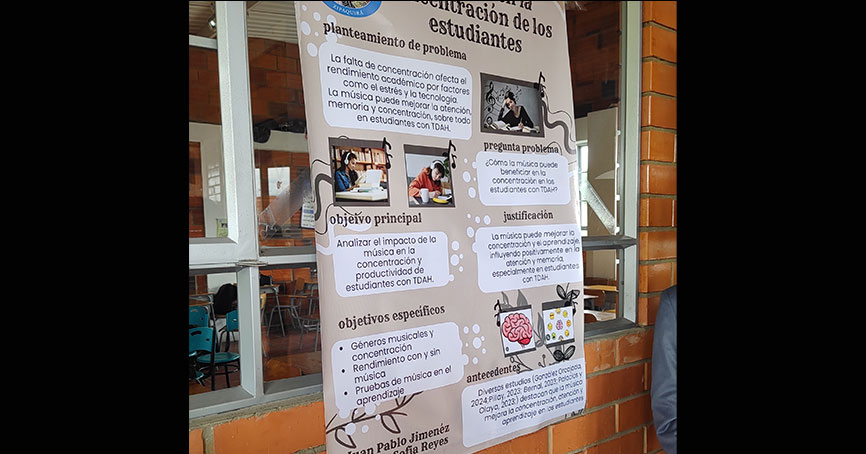 ZIPAQUIRÁ
en la
concentración de los
estudiantes
planteamiento de problema
La falta de concentración afecta el
rendimiento académico por factores
como el estrés y la tecnología.
La música puede mejorar la atención,
memoria y concentración, sobre todo
en estudiantes con TDAH.
pregunta problema
¿Cómo la música puede
beneficiar en la
concentración en los
estudiantes con TDAH?
objeivo principal
Analizar el impacto de la
música en la
concentración y
productividad de
estudiantes con TDAH.
justificación
La música puede mejorar la
concentración y el aprendizaje,
influyendo positivamente en la
atención y memoria,
especialmente en estudiantes
con TDAH.
objetivos específicos
• Géneros musicales y
concentración
• Rendimiento con y sin
música
• Pruebas de música en el
aprendizaje
antecedentes
Diversos estudios (González Orcajada,
2024;Pilay, 2023; Bernal, 2023; Palacios y
Olaya, 2023;) destacan que la música
mejora la concentración, atención y
aprendizaje en los estudiantes
Juan Pablo Jimenéz
Sofia Reyes